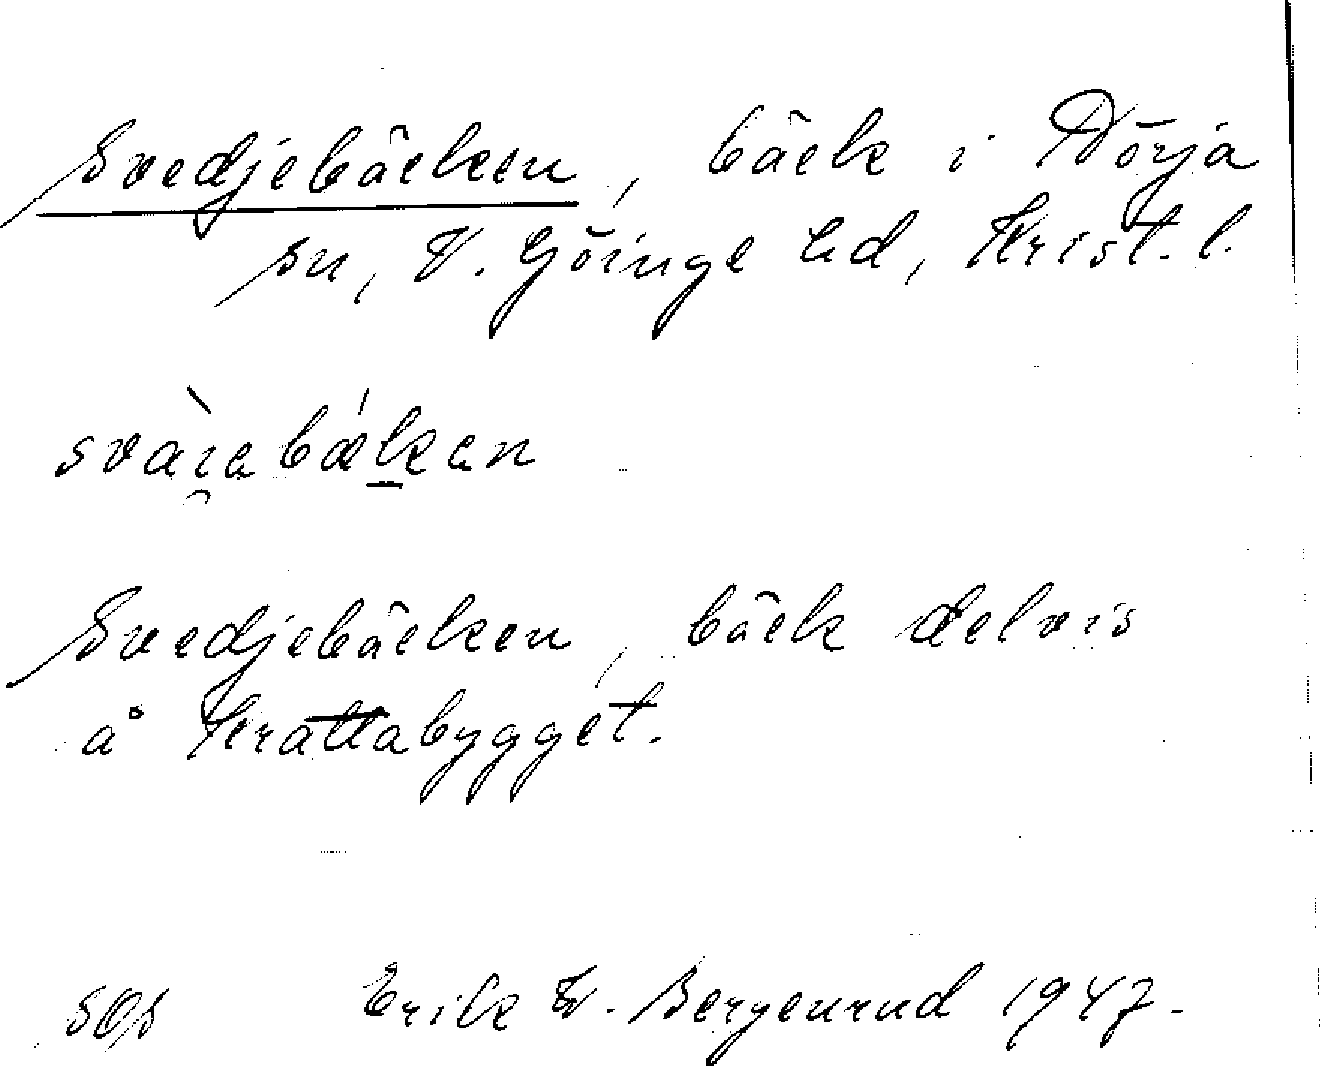 Svedjebäcken, bäck i Nörja
sn, V. Göinge hd, Krist. l.
svài̯abǽḵan
Svedjebäcken, bäck delvis
å Krattabygget.
SOs Erik W. Bergenrud 1947.